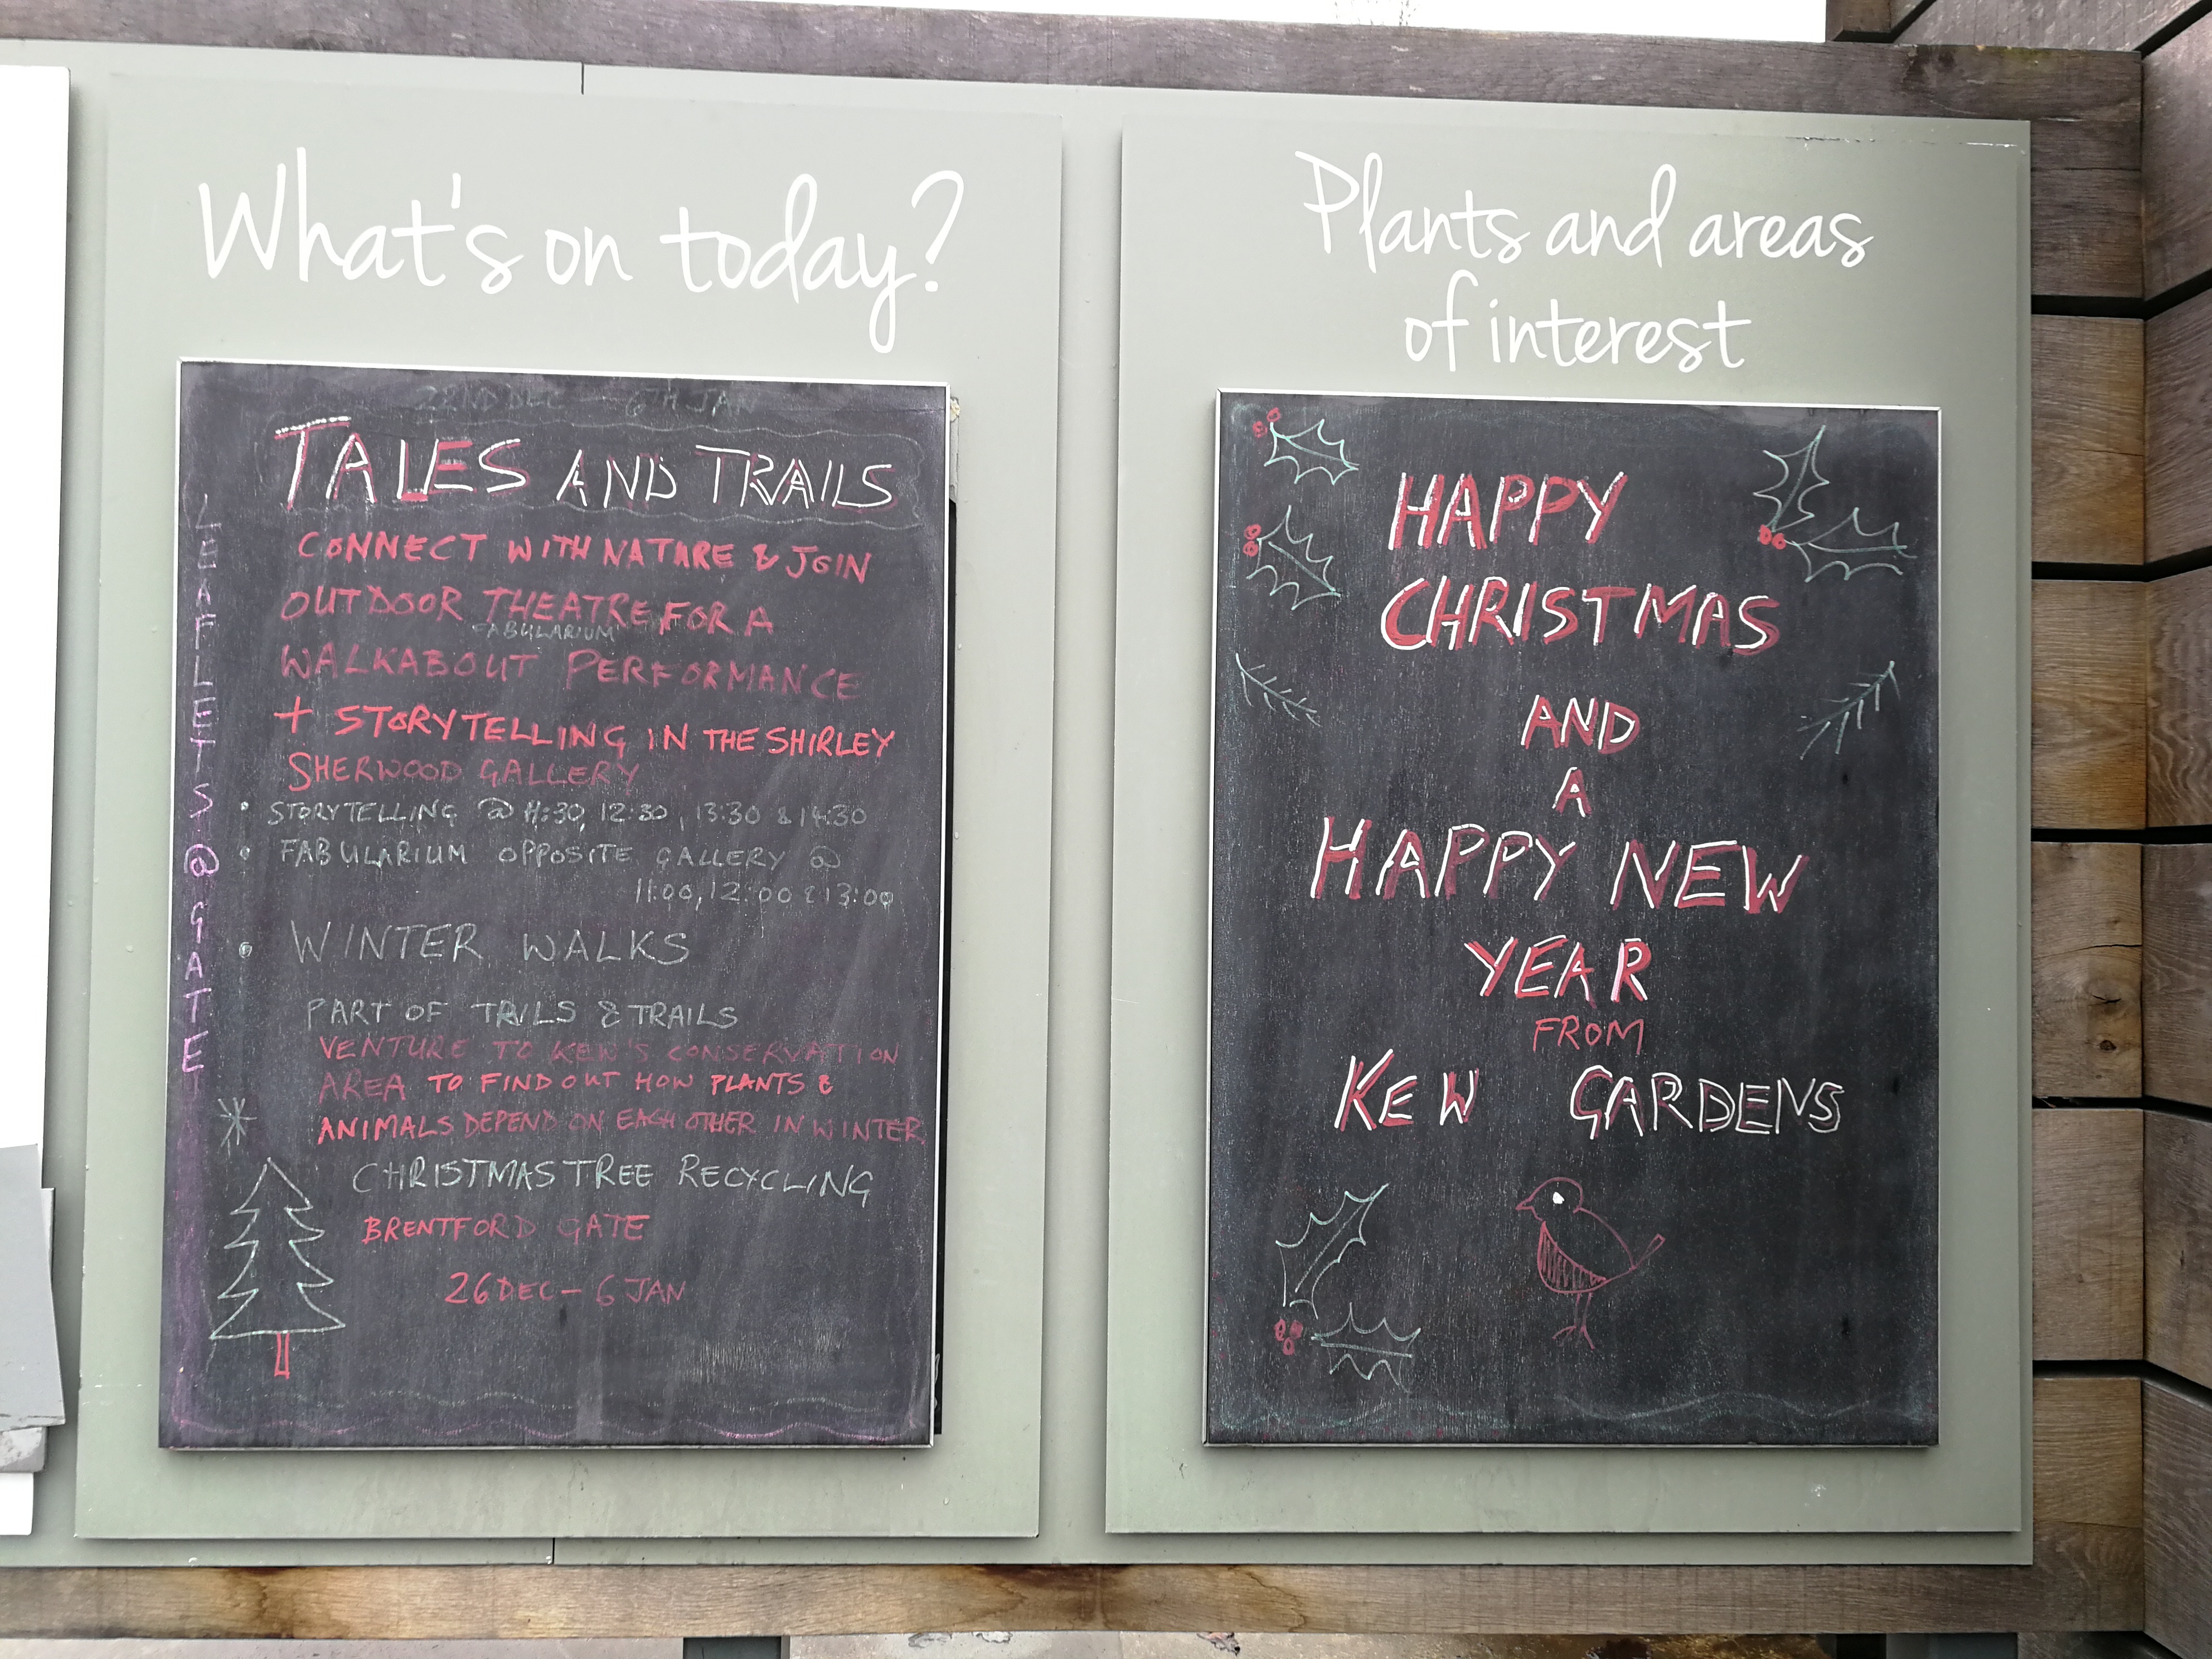 What's on today?
22ND DEC — 6TH JAN
TALES AND TRAILS
CONNECT WITH NATURE & JOIN
OUTDOOR THEATRE FOR A
FABULARIUM
WALKABOUT PERFORMANCE
+ STORYTELLING IN THE SHIRLEY
SHERWOOD GALLERY
• STORYTELLING @ 11:30, 12:30, 13:30 & 14:30
• FABULARIUM OPPOSITE GALLERY @
11:00, 12:00 & 13:00
• WINTER WALKS
PART OF TAILS & TRAILS
VENTURE TO KEW'S CONSERVATION
AREA TO FIND OUT HOW PLANTS &
ANIMALS DEPEND ON EACH OTHER IN WINTER.
CHRISTMAS TREE RECYCLING
BRENTFORD GATE
26 DEC - 6 JAN
LEAFLETS @ GATE
Plants and areas
of interest
HAPPY
CHRISTMAS
AND
A
HAPPY NEW
YEAR
FROM
KEW GARDENS